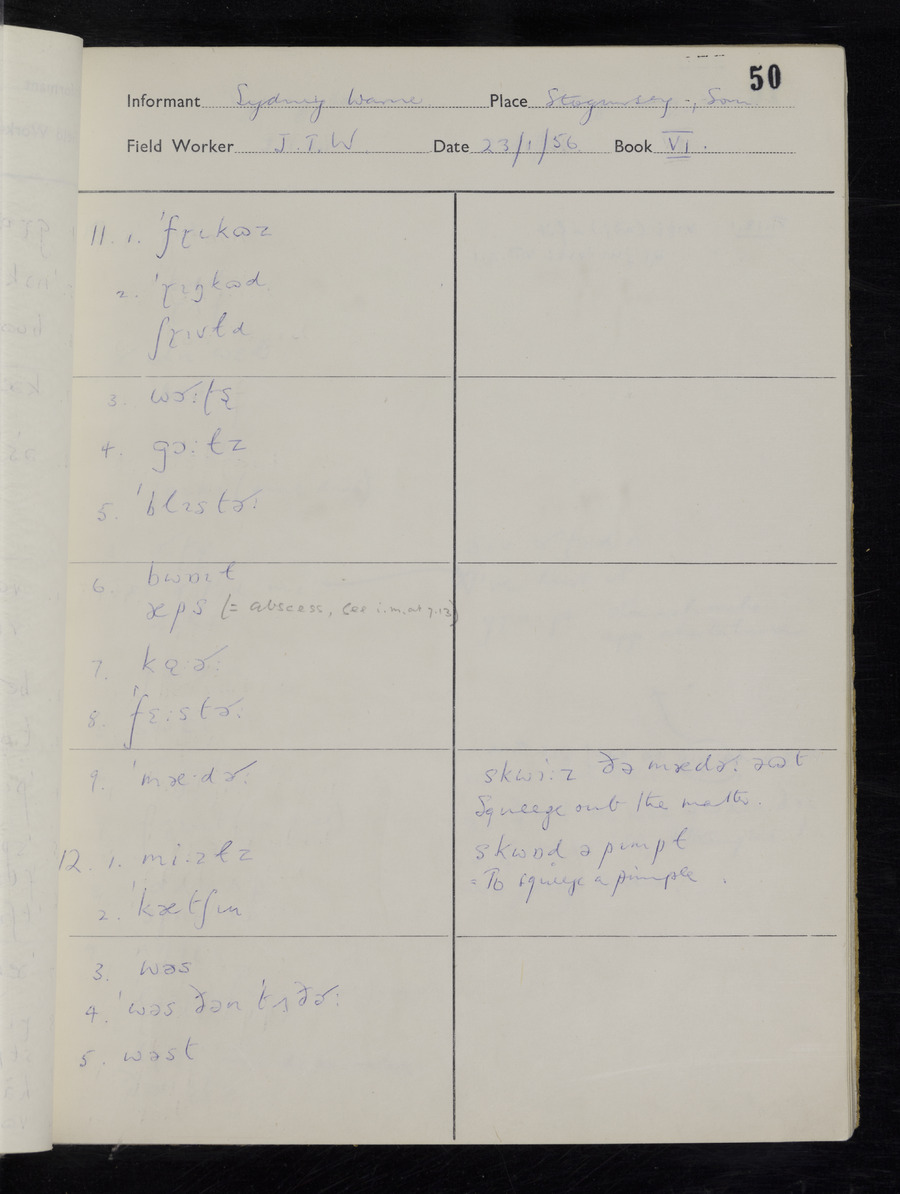 50
Informant Sydney Warne Place Stogursey, Som.
Field Worker J. T. W. Date 23/1/56 Book VI.
11. 1. ˈfɽɩkɷz
2. ˈɽɩŋkɷd
ʃɽɩvɫd
3. wɚ:ts̩
4. gɔ:ɫz
5. ˈblɪstɚ:
6. bwɒɪɫ
æps (= abscess, see i.m. at 7.13)
7.
8. ˈfɛ:stɚ:
9. ˈmæ·dɚ:
skwi:z ðə mædɚ: əɷt
Squeeze out the matter.
skwɒd ə pɩmpɫ
= To squeeze a pimple.
12. 1. mi:zɫz
2. ˈkætʃɩn
3. wəs
4. ˈwəs ðən
5. wəst